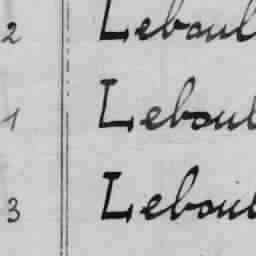 2 Leboul
1 Leboul
3 Leboul